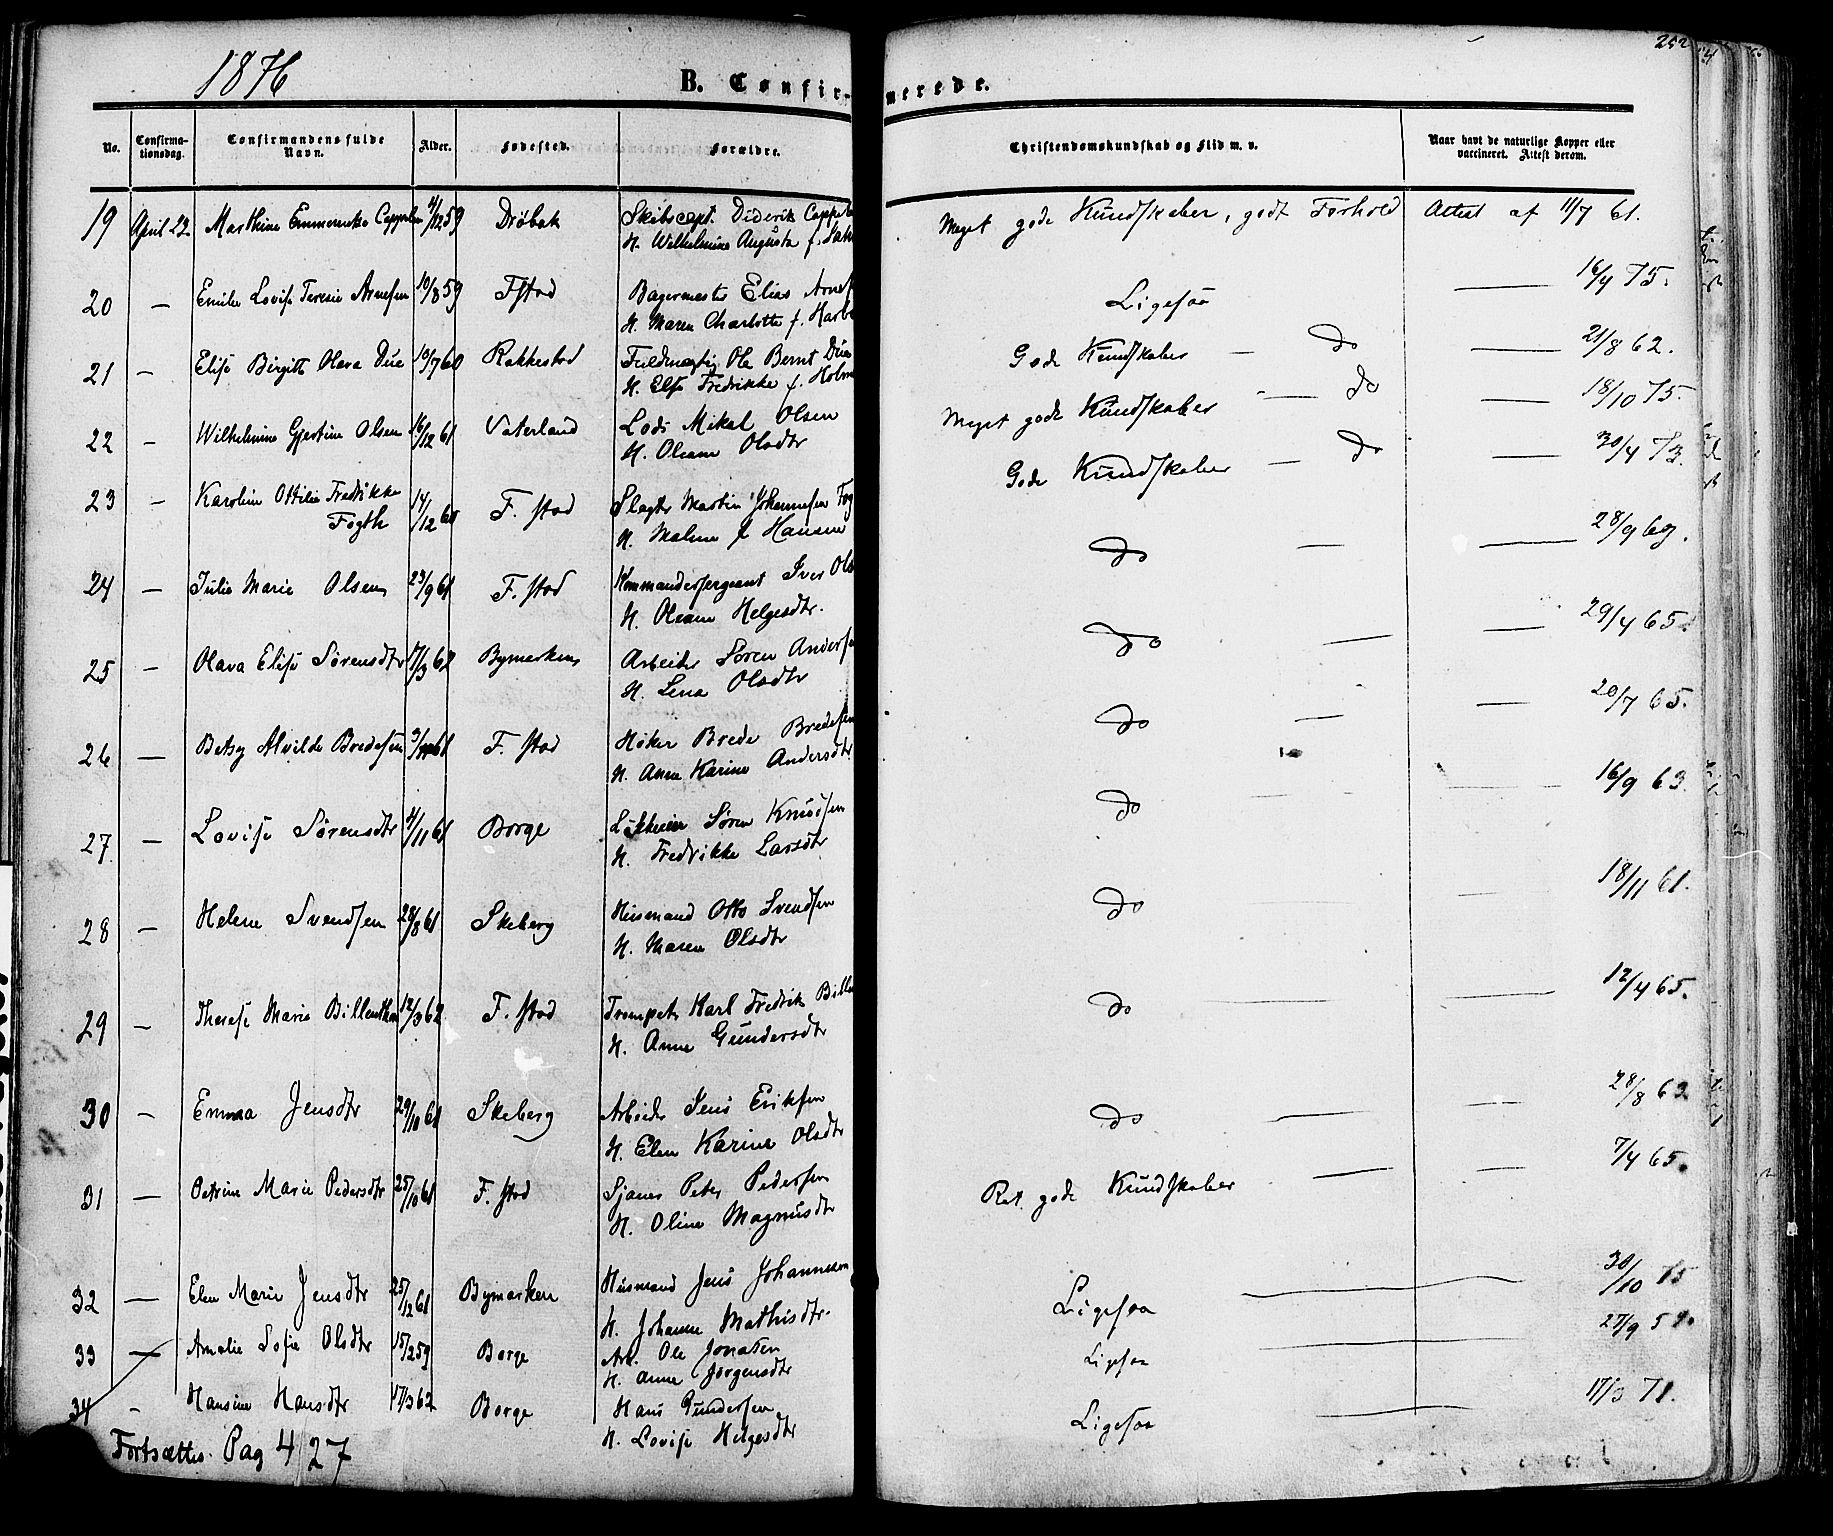 1876
B. Confirmerede.
252
No.
Confirmationsdag.
Confirmandens fulde Navn.
Alder.
Fødested.
Forældre.
Christendomskundskab og Flid m. v.
Naar havt de naturlige Kopper eller vaccineret. Attest derom.
19 April 22 Marthine Emmerentse 4/12 59 Drøbak Skibscapt. Diderik Meget gode Kundskaber, godt Forhold Attest af 11/7 61.
H. Wilhelmine Augusta f.
20 — Emilie Lovise Teresie Arnesen 10/8 59 Fstad Bagermester Elias Ligesaa — 16/4 75.
H. Maren Charlotte f.
21 — Elise Birgitte Olava Due 10/7 60 Rakkestad Fuldmægtig Ole Bernt Due Gode Kundskaber — do — 21/8 62.
H. Elise Fredrikke f.
22 — Wilhelmine Gjertine Olsen 16/12 61 Vaterland Lods Mikal Olsen Meget gode Kundskaber — do — 18/10 75.
H. Oleane Olsdtr
23 — Karoline Ottilie Fredrikke 14/12 60 F. stad Slagter Martin Johannesen Gode Kundskaber — do — 30/4 73.
Fogth H. Malene f Hansen
24 — Julie Marie Olsen 23/9 61 F. stad Kommandersergeant Iver do — — 28/9 69.
H. Oleane Helgesdtr.
25 — Olava Elise Sørensdtr Bymarken Arbeider Søren Andersen do — — 29/4 65.
H. Lena Olsdtr
26 — Betsy Alvilde Bredesen F. stad Høker Brede Bredesen do — — 20/7 65.
H. Anne Karine Andersdtr
27 — Lovise Sørensdtr 4/11 61 Borge Søren Knudsen do — — 16/9 63.
H. Fredrikke Larsdtr
28 — Helene Svendsen 28/8 61 Skeberg Husmand Otto Svendsen do — — 18/11 61.
H. Maren Olsdtr
29 — Therese Marie 12/3 62 F. stad Trompet. Karl Fredrik do — — 12/4 65.
H. Anne Gundersdtr
30 — Emma Jensdtr 29/10 61 Skeberg Arbeider Jens Eriksen do — — 28/8 62
H. Elen Karine Olsdtr
31 — Petrine Marie Pedersdtr 25/10 61 F. stad Sjøman Peter Pedersen Ret gode Kundskaber — — 7/4 65.
H. Oline Magnusdtr
32 — Elen Marie Jensdtr 25/12 61 Bymarken Husmand Jens Johannesen Ligesaa — — 30/10 75
H. Johanne Mathisdtr.
33 — Amalie Sofie Olsdtr 15/2 59 Borge Arb. Ole Jonasen Ligesaa — — 27/9 59.
H. Anne Jørgensdtr
34 - Hansine Hansdtr 17/3 62 Borge Hans Gundersen Ligesaa — 17/3 71.
H. Lovise Helgesdtr
Fortsættes Pag 427